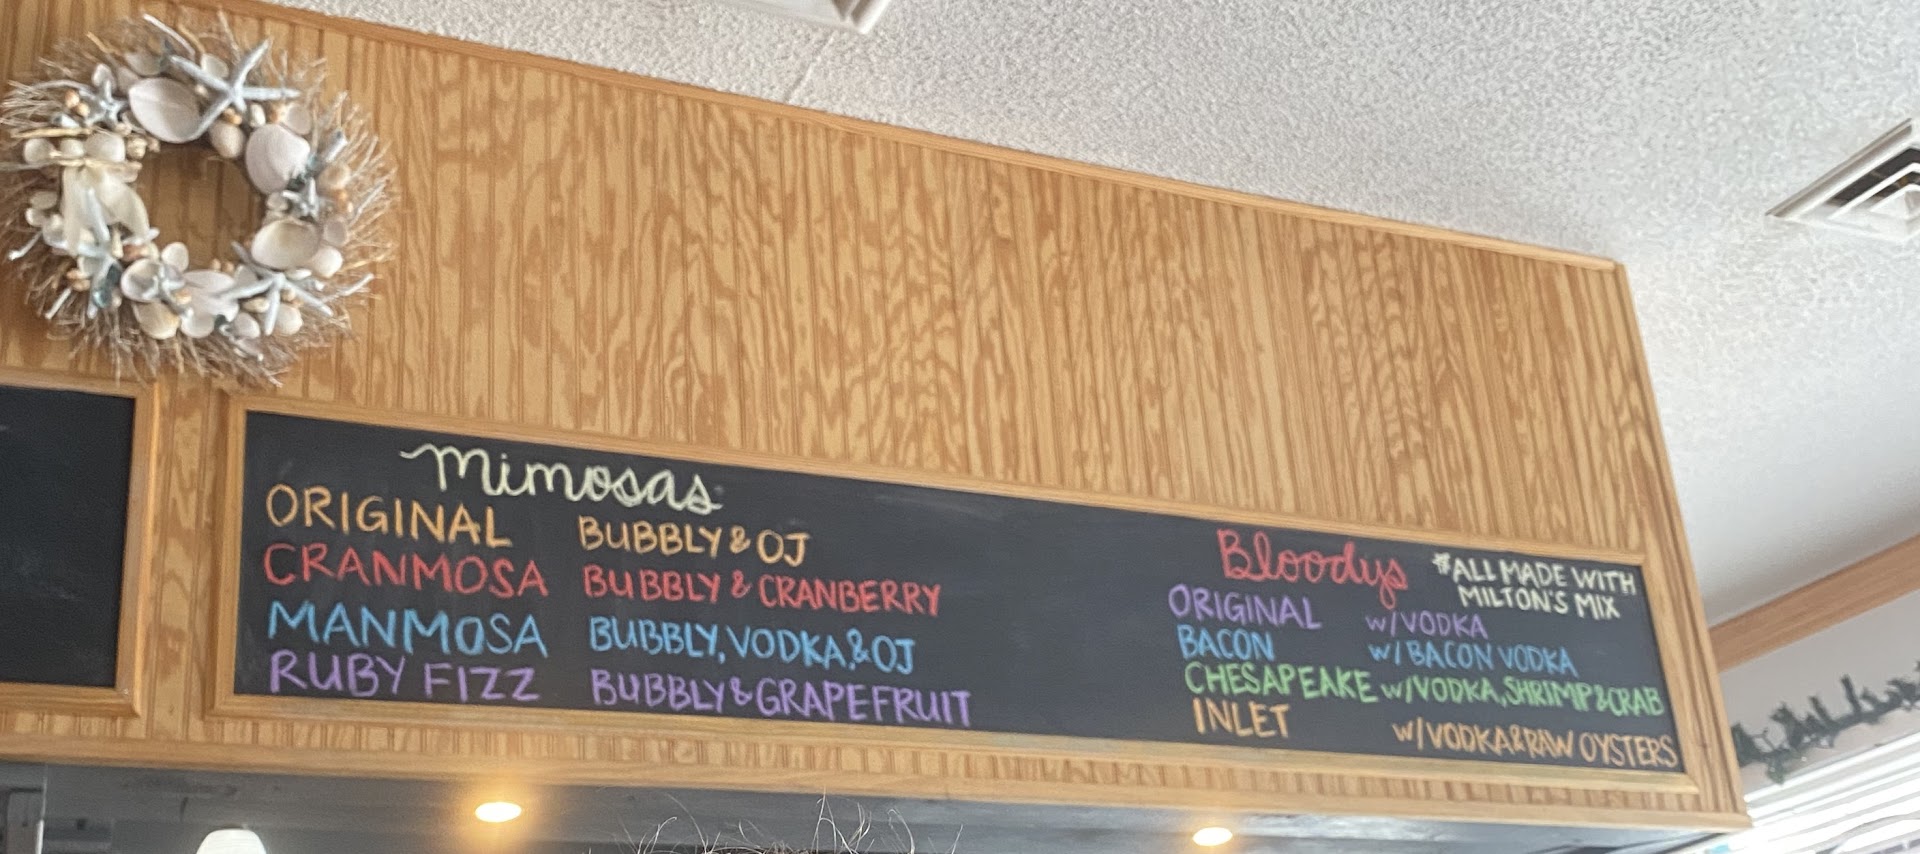 Mimosas
ORIGINAL BUBBLY & OJ
CRANMOSA BUBBLY & CRANBERRY
MANMOSA BUBBLY, VODKA, & OJ
RUBY FIZZ BUBBLY & GRAPEFRUIT
Bloodys *ALL MADE WITH
MILTON'S MIX
ORIGINAL w/ VODKA
BACON w/ BACON VODKA
CHESAPEAKE w/ VODKA, SHRIMP & CRAB
INLET w/ VODKA & RAW OYSTERS